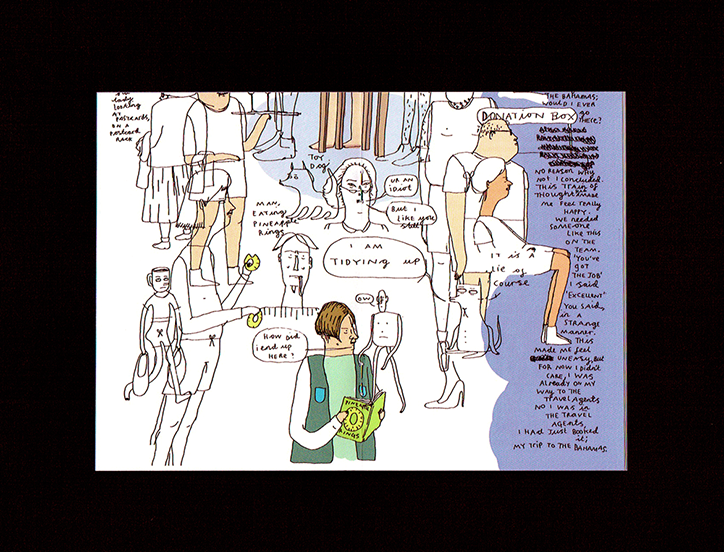 lady
looking
AT
POSTCARDS,
ON A
POSTCARD
RACK
TOY
DOG
MAN,
EATING
PINEAPPLE
RINGS
UR AN
iDiOT
BUT I
LIKE YOU
STILL
I AM
TIDYING UP
IT IS A
LIE OF
COURSE
OW
HOW DID
I END UP
HERE?
RINGS
DONATION BOX
THE BAHAMAS;
WOULD I EVER
GO
THERE?
NO REASON WHY
NOT I CONCLUDED.
THIS TRAIN OF
THOUGHT MADE
ME FEEL REALLY
HAPPY.
WE NEEDED
SOMEONE
LIKE THIS
ON THE
TEAM.
'YOU'VE
GOT
THE JOB'
I SAID
'EXCELLENT'
YOU SAID,
IN A
STRANGE
MANNER.
THIS
MADE ME FEEL
UNEASY, BUT
FOR NOW I DIDN'T
CARE, I WAS
ALREADY ON MY
WAY TO THE
TRAVEL AGENTS
NO I WAS IN
THE TRAVEL
AGENTS,
I HAD JUST BOOKED
IT;
MY TRIP TO THE BAHAMAS.